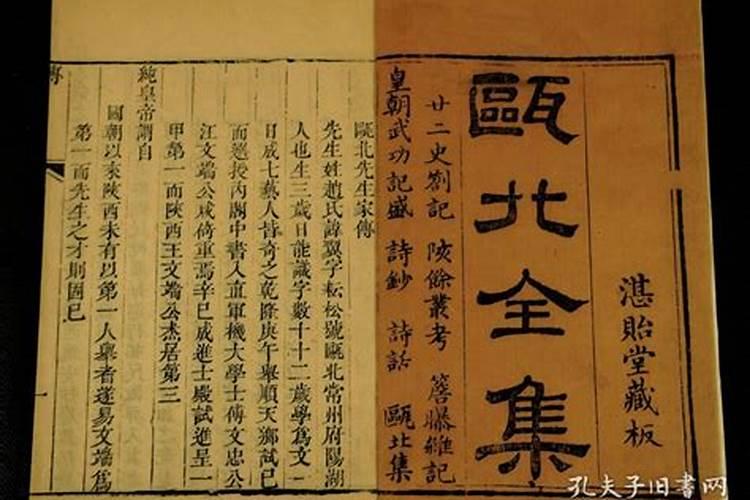 湛貽堂藏板
甌北全集
廿二史劄記 陔餘叢考 簷曝雜記
皇朝武功記盛 詩鈔 詩話 甌北集
甌北先生家傳
先生姓趙氏諱翼字耘松號甌北常州府陽湖
人也生三歲日能識字數十十二歲學爲文一
日成七藝人皆奇之乾隆庚午舉順天鄉試已
而選授內閣中書入直軍機大學士傅文忠公
汪文端公咸倚重焉辛巳成進士殿試進呈一
甲第一而陝西王文端公杰居第三
純皇帝謂自
國朝以來陝西未有以第一人舉者遂易文端爲
第一而先生之才則固已
孔夫子旧書网